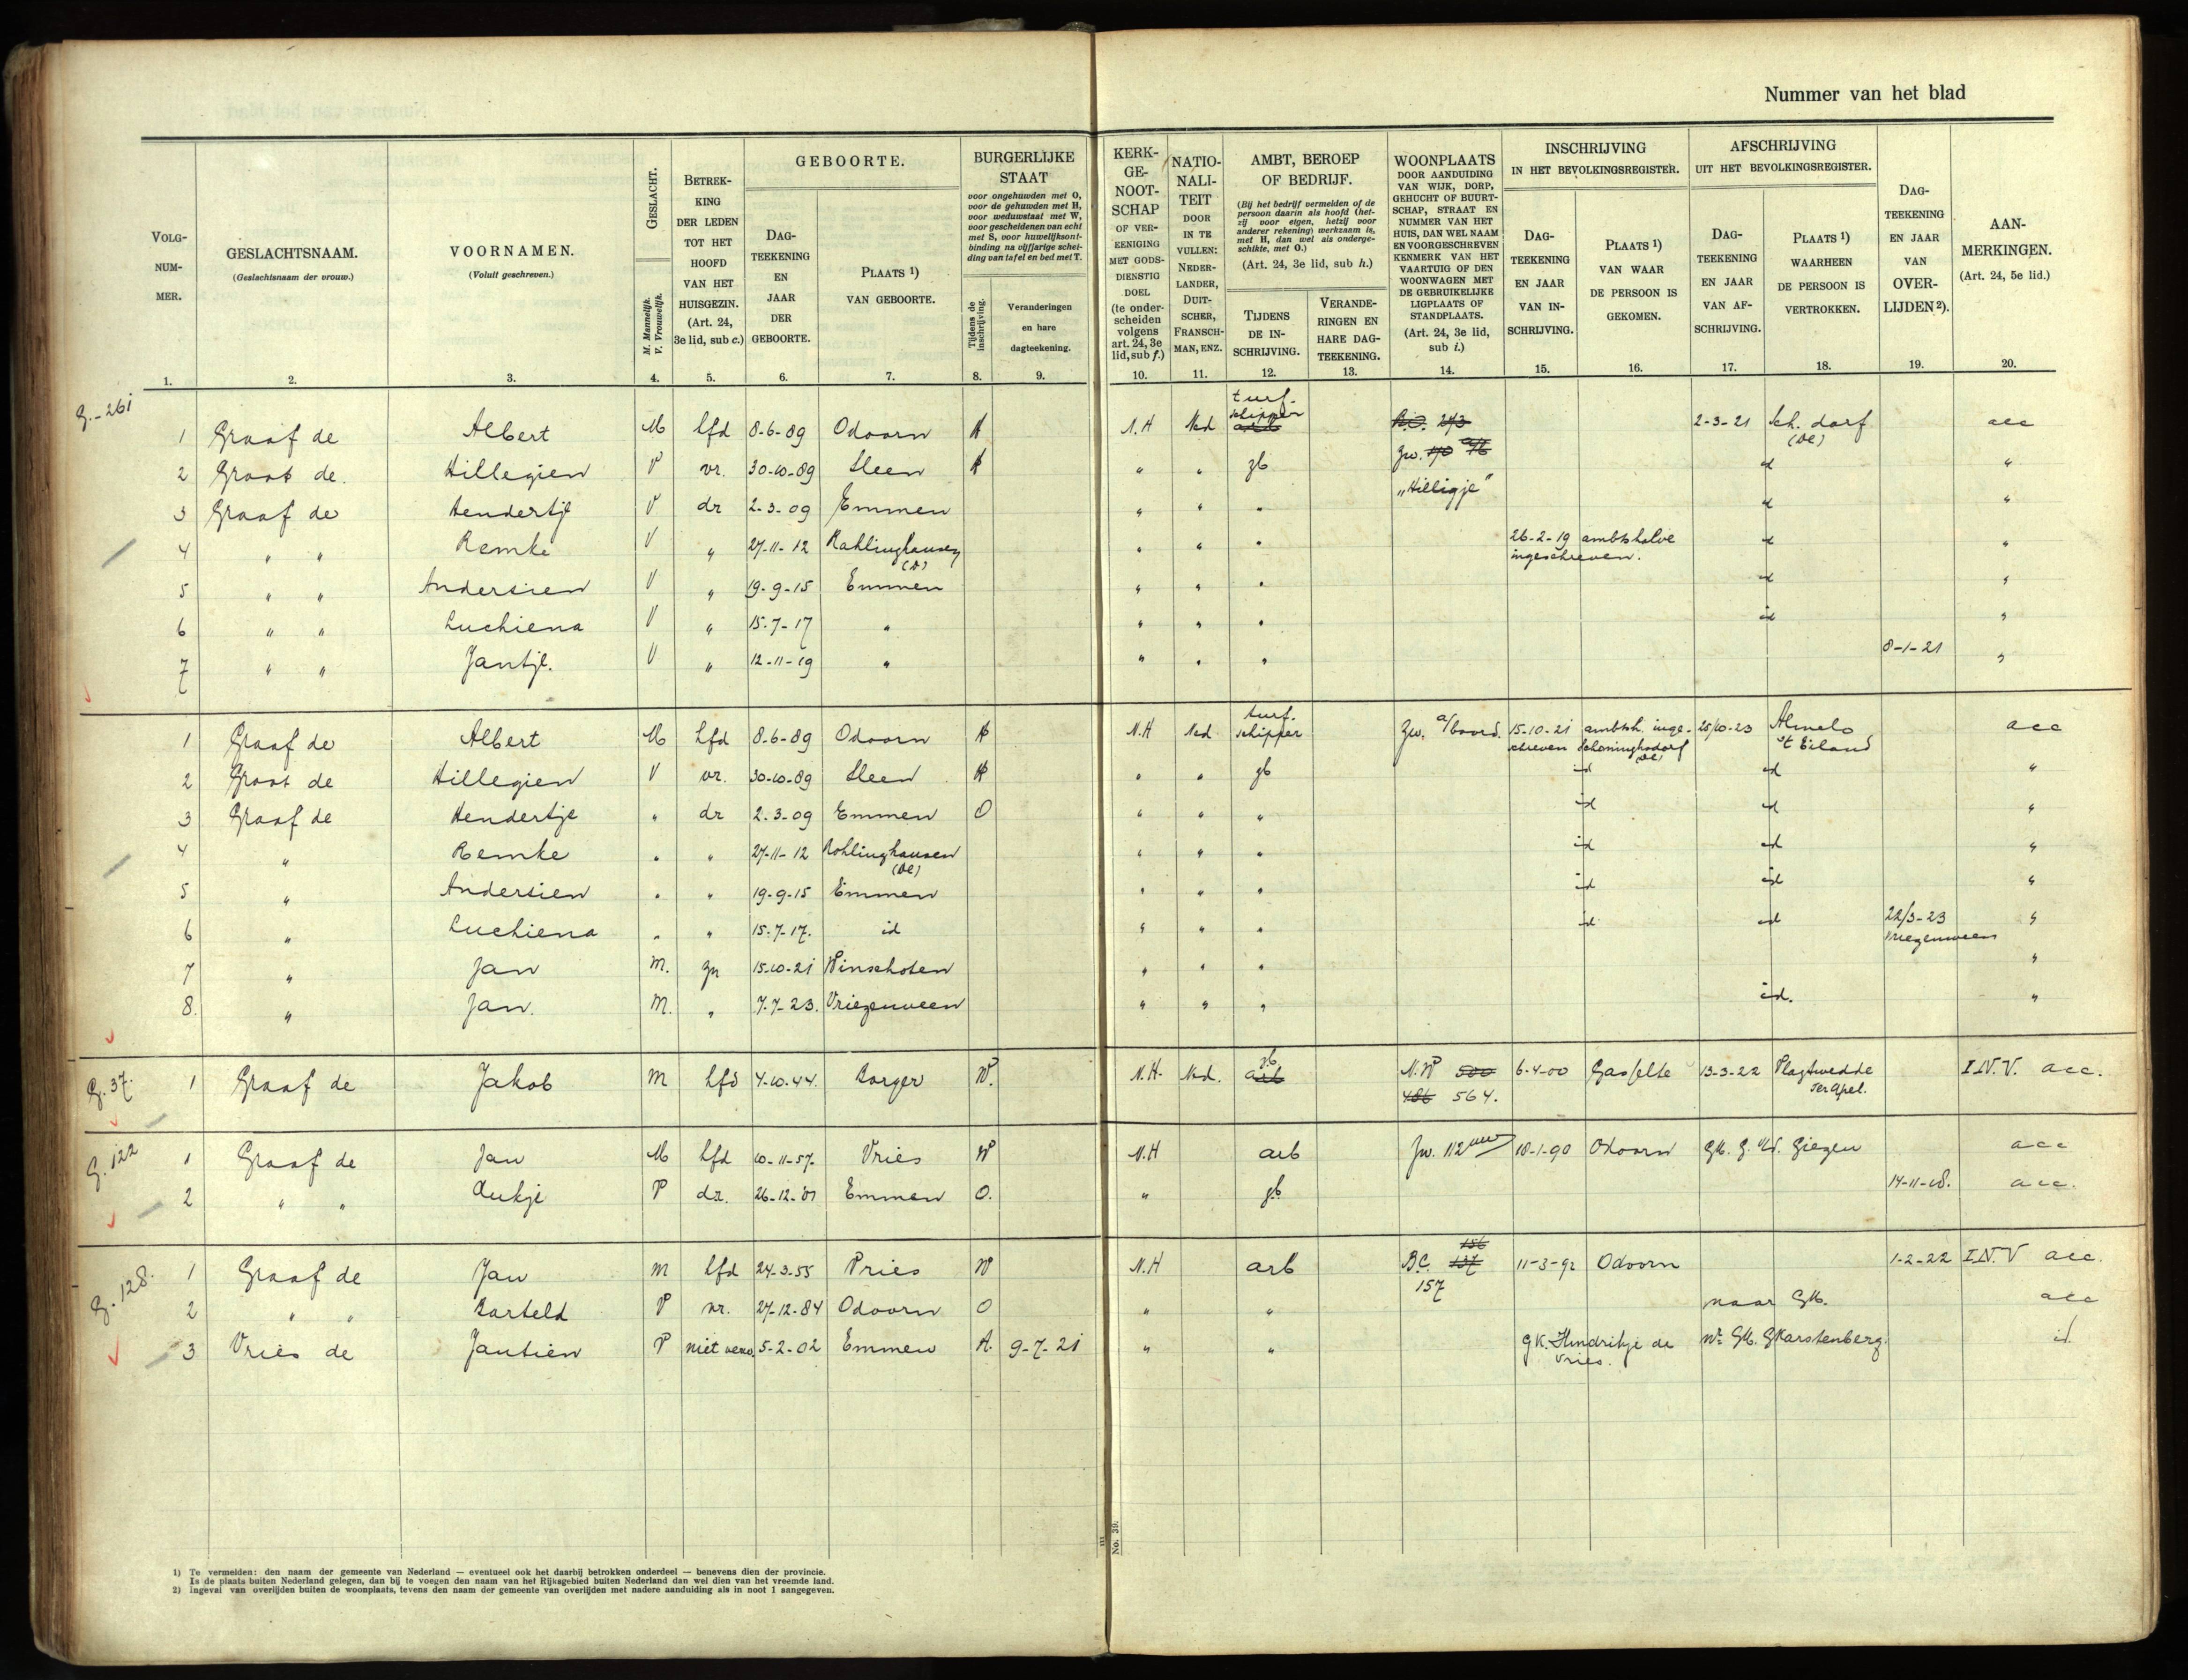 Nummer van het blad
VOLG-NUM-MER.
GESLACHTSNAAM.
(Geslachtsnaam der vrouw.)
VOORNAMEN.
(Voluit geschreven.)
GESLACHT.
M. Mannelijk.
V. Vrouwelijk.
BETREK-KING DER LEDEN TOT HET HOOFD VAN HET HUISGEZIN.
(Art. 24, 3e lid, sub c.)
GEBOORTE.
DAG-TEEKENING EN JAAR DER GEBOORTE.
PLAATS 1) VAN GEBOORTE.
BURGERLIJKE STAAT
voor ongehuwden met O,
voor de gehuwden met H,
voor weduwstaat met W,
voor gescheidenen van echt
met S, voor huwelijksont-
binding na vijfjarige schei-
ding van tafel en bed met T.
Tijdens de inschrijving.
Veranderingen en hare dagteekening.
KERK-GE-NOOT-SCHAP
OF VER-EENIGING MET GODS-DIENSTIG DOEL
(te onder-scheiden volgens art. 24, 3e lid, sub f.)
NATIO-NALI-TEIT
DOOR IN TE VULLEN: NEDER-LANDER, DUIT-SCHER, FRANSCH-MAN, ENZ.
AMBT, BEROEP OF BEDRIJF.
(Bij het bedrijf vermelden of de
persoon daarin als hoofd (het-
zij voor eigen, hetzij voor
anderer rekening) werkzaam is,
met H, dan wel als onderge-
schikte, met O.)
(Art. 24, 3e lid, sub h.)
TIJDENS DE IN-SCHRIJVING.
VERANDE-RINGEN EN HARE DAG-TEEKENING.
WOONPLAATS
DOOR AANDUIDING
VAN WIJK, DORP,
GEHUCHT OF BUURT-
SCHAP, STRAAT EN
NUMMER VAN HET
HUIS, DAN WEL NAAM
EN VOORGESCHREVEN
KENMERK VAN HET
VAARTUIG OF DEN
WOONWAGEN MET
DE GEBRUIKELIJKE
LIGPLAATS OF
STANDPLAATS.
(Art. 24, 3e lid, sub i.)
INSCHRIJVING
IN HET BEVOLKINGSREGISTER.
DAG-TEEKENING EN JAAR VAN IN-SCHRIJVING.
PLAATS 1) VAN WAAR DE PERSOON IS GEKOMEN.
AFSCHRIJVING
UIT HET BEVOLKINGSREGISTER.
DAG-TEEKENING EN JAAR VAN AF-SCHRIJVING.
PLAATS 1) WAARHEEN DE PERSOON IS VERTROKKEN.
DAG-TEEKENING EN JAAR VAN OVER-LIJDEN 2).
AAN-MERKINGEN.
(Art. 24, 5e lid.)
1. 2. 3. 4. 5. 6. 7. 8. 9. 10. 11. 12. 13. 14. 15. 16. 17. 18. 19. 20.
G.-261
1 Graaf de Albert M hfd 8-6-89 Odoorn H N.H Ned turf-schipper arb 2-3-21 Sch. dorf (Dl) acc
2 Groot de. Hillegien V vr. 30-10-89 Sleen H " " zb Zw. id "
"Hilligje"
3 Graaf de Hendertje V dr 2-3-09 Emmen " " " id "
4 " " Remke V " 27-11-12 Rahlinghausen (D) " " " 26-2-19 ambtshalve ingeschreven. id "
5 " " Andersien V " 19-9-15 Emmen " " " id "
6 " " Luchiena V " 15-7-17 " " " " id "
7 " " Jantje. V " 12-11-19 " " " " 8-1-21 "
1 Graaf de Albert M hfd 8-6-89 Odoorn H N.H Ned turf-schipper Zw. a/boord. 15-10-21 ambtsh. inge-schreven Schoninghsdorf (Dl) 25/10-23 Almelo 't Eiland acc
2 Groot de Hillegien V vr. 30-10-89 Sleen H " " zb id id "
3 Graaf de Hendertje " dr 2-3-09 Emmen O " " " id id "
4 " Remke " " 27-11-12 Rohlinghausen (Dl) " " " id id "
5 " Andersien " " 19-9-15 Emmen " " " id id "
6 " Luchiena " " 15-7-17. id " " " id id 22/3-23 Vriezenveen "
7 " Jan M. zn 15-10-21 Winschoten " " " "
8. " Jan. M. " 7-7-23. Vriezenveen " " " id. "
G. 37.
1 Graaf de Jakob M hfd 4-10-44. Borger W. N.H. Ned. zb arb N.W 500 486 564. 6-4-00 Gasselte 13-3-22 Vlagtwedde Ter Apel. I.N.V. acc.
G. 122
1 Graaf de Jan M hfd 10-11-57. Vries W N.H arb Zw. 112 18-1-90 Odoorn GK. G. Giezen acc
2 " " Aukje V dr. 26-12-'01 Emmen O. " zb 14-11-18. acc.
G. 128.
1 Graaf de Jan M hfd 24-3-55 Vries W N.H arb B.C. 137 156 157 11-3-92 Odoorn 1-2-22 I.N.V acc.
2 " " Barteld V nr. 27-12-84 Odoorn O " " naar GK. acc
3 Vries de Jantien V niet verw. 5-2-02 Emmen H. 9-7-21 " " GK. Hindrikje de Vries. nr GK. G Karstenberg. id
No. 39.
1) Te vermelden: den naam der gemeente van Nederland — eventueel ook het daarbij betrokken onderdeel — benevens dien der provincie.
Is de plaats buiten Nederland gelegen, dan bij te voegen den naam van het Rijksgebied buiten Nederland dan wel dien van het vreemde land.
2) Ingeval van overlijden buiten de woonplaats, tevens den naam der gemeente van overlijden met nadere aanduiding als in noot 1 aangegeven.